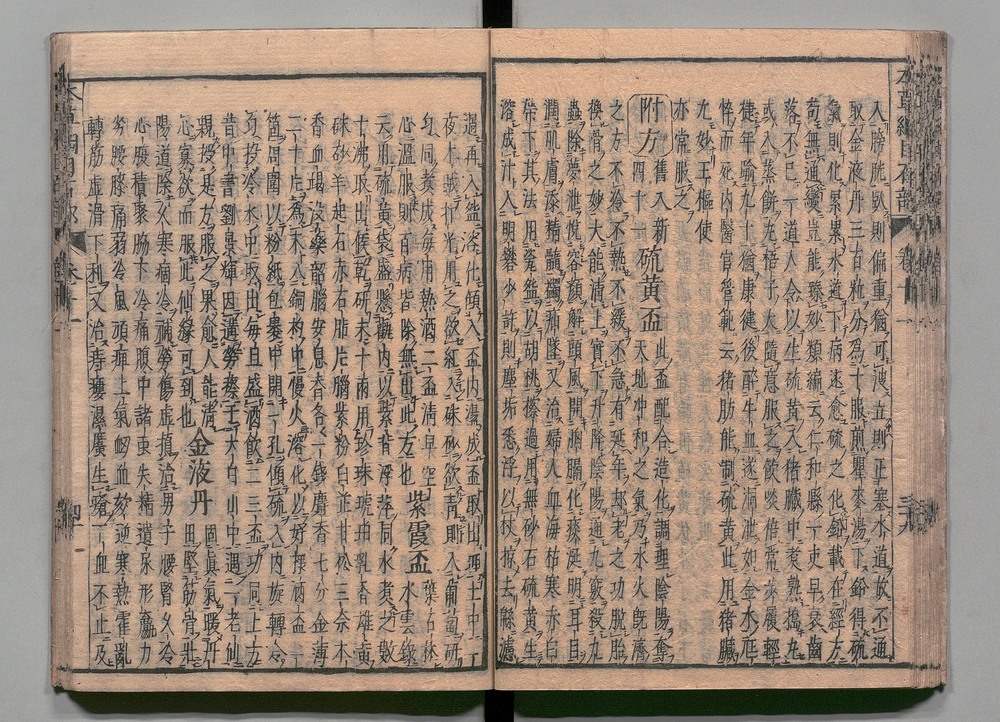 入膀胱臥則偏重猶可洩立則正塞水道故不通
取金液丹三百粒分為十服煎瞿麥湯下鉛得硫
氣則化累累水道下病遂愈硫之化鉛載在經方
苟無通變豈能臻妙類編云仁和縣一吏早衰齒
落不已一道人令以生硫黃入猪臟中煮熟搗丸
或入蒸餅丸梧子大隨意服之飲啖倍常步履輕
捷年逾九十猶康健後醉牛血遂洞泄如金水尫
悴而死內醫官管範云猪肪能制硫黃此用猪臟
亦常服之
尤妙王樞使
附方舊八新四十一硫黃盃此盃配合造化調理陰陽奪
天地冲和之氣乃水火既濟
之方不冷不熱不緩不急有延年却老之功脫胎
換骨之妙大能清上實下升降陰陽通九竅殺九
蟲除夢泄悅容顏解頭風開胸膈化痰涎明耳目
潤肌膚添精髓蠲疝墜又治婦人血海枯寒赤白
帶下其法用瓷盌以胡桃擦過用無砂石硫黃生
溶成汁入明礬少許則塵垢悉浮以杖掠去綿濾
過再入盌溶化傾入盃內盪成盃取出埋土中一
夜木賊打光用之欲紅入硃砂欲青則入葡萄研
勻同煮成每用熱酒二盃清早空
心溫服則百病皆除無出此方也紫霞盃葉石林
水雲錄
云用硫黃袋盛懸罐內以紫背浮萍同水煮之數
十沸取出候乾研末十兩用珍珠琥珀乳香雄黃
硃砂羊起石赤石脂片腦紫粉白芷甘松三奈木
香血竭沒藥韶腦安息香各一錢麝香七分金薄
二十片為末入銅杓中慢火溶化以好様酒盃一
箇周圍以粉紙包裹中開一孔傾硫入內旋轉令
勻投冷水中取出每旦盛酒飲二三盃功同上方
昔中書劉景輝因遘勞瘵于太白山中遇一老仙
親授是方服之果愈人能清
心寡欲而服此仙緣可到也金液丹固真氣暖丹
田堅筋骨壯
陽道除久寒痼冷補勞傷虛損治男子腰腎久冷
心腹積聚脇下冷痛腹中諸虫失精遺尿形羸力
劣腰膝痛弱冷風頑痺上氣衄血欬逆寒熱霍亂
轉筋虛滑下利又治痔瘻濕䘌生瘡下血不止及